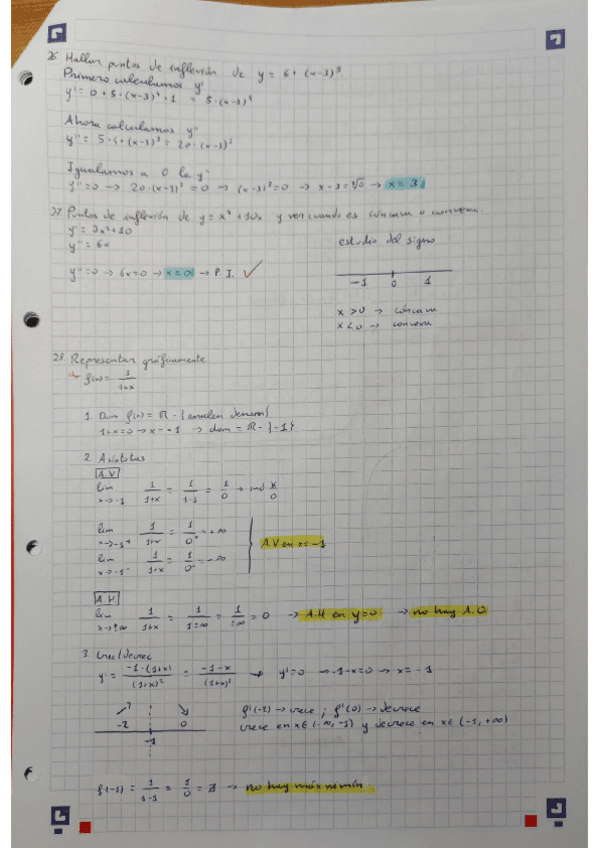 26 Hallar puntos de inflexión de y = 6 + (x-3)⁵.
Primero calculamos y'
y' = 0 + 5·(x-3)⁴·1 = 5·(x-3)⁴
Ahora calculamos y"
y" = 5·4·(x-3)³ = 20·(x-3)³
Igualamos a 0 la y"
y"=0 → 20·(x-3)³ = 0 → (x-3)³=0 → x-3=∛0 → x=3
27. Puntos de inflexión de y = x³ + 10x y ver cuando es cóncava o convexa.
y' = 3x²+10
y" = 6x
estudio del signo
y"=0 → 6x=0 → x=0 → P.I. ✓
-1 0 1
x > 0 → cóncava
x < 0 → convexa
28. Representar gráficamente
f(x) = 1/(1+x)
1. Dom f(x) = ℝ - {anulan denom}
1+x=0 → x=-1 → dom = ℝ - {-1}
2. Asíntotas
A.V
lim x→-1 1/(1+x) = 1/(1-1) = 1/0 → ind K/0
lim x→-1⁺ 1/(1+x) = 1/0⁺ = +∞
A.V en x=-1
lim x→-1⁻ 1/(1+x) = 1/0⁻ = -∞
A.H
lim x→±∞ 1/(1+x) = 1/(1±∞) = 1/±∞ = 0 → A.H en y=0 → no hay A.O
3. Crec/decrec
y' = -1·(1+x)/(1+x)² = -1-x/(1+x)² → y'=0 → -1-x=0 → x=-1
f'(-2) → crece ; f'(0) → decrece
-2 0
crece en x∈(-∞,-1) y decrece en x∈(-1,+∞)
-1
f(-1) = 1/(1-1) = 1/0 = ∄ → no hay máx ni mín